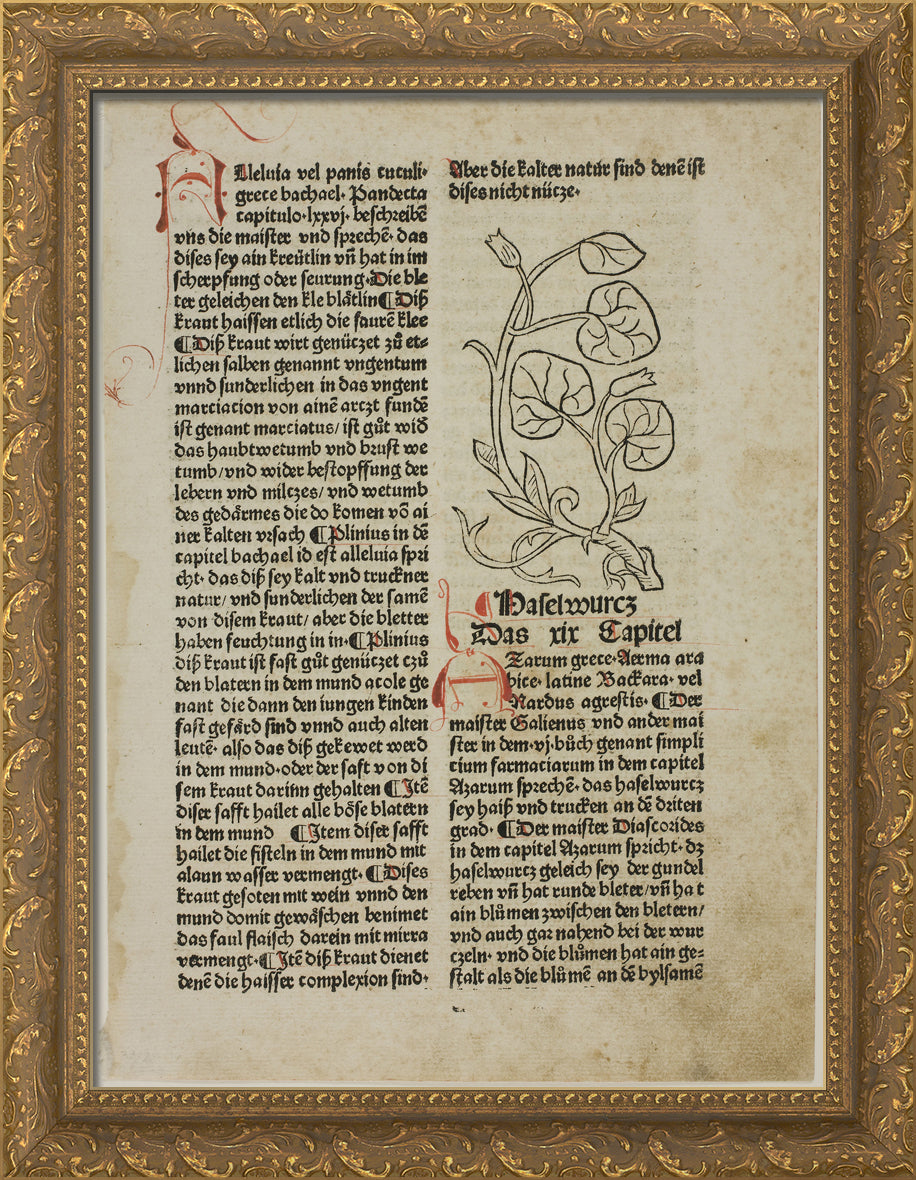 Alleluia vel panis cuculi·
grece bachael· Pandecta
capitulo·lxxvj· beschreibē
vns die maister vnd sprechē· das
dises sey ain kreütlin vñ hat in im
scherpfung oder seurung·Die ble
ter geleichen den kle blåtlin¶Diß
kraut haissen etlich die saurē klee
¶Diß kraut wirt genüczet zů et⸗
lichen salben genannt vngentum
vnnd sunderlichen in das vngent
marciacion von ainē arczt fundē
ist genant marciatus/ ist gůt wid
das haubtwetumb vnd brust we
tumb/vnd wider bestopffung der
lebern vnd milczes/ vnd wetumb
des gedårmes die do komen vō ai
ner kalten vrsach ¶Plinius in dē
capitel bachael id est alleluia spri
cht· das diß sey kalt vnd truckner
natur/ vnd sunderlichen der samē
von disem kraut/ aber die bletter
haben feuchtung in in·¶Plinius
diß kraut ist fast gůt genüczet czů
den blatern in dem mund acole ge
nant die dann den iungen kinden
fast gefård sind vnnd auch alten
leutē· also das diß gekewet werd
in dem mund·oder der saft von di
sem kraut darinn gehalten ¶Itē
diser safft hailet alle böse blatern
in dem mund ¶Item diser safft
hailet die fisteln in dem mund mit
alaun wasser vermengt·¶Dises
kraut gesoten mit wein vnnd den
mund domit gewåschen benimet
das faul flaisch darein mit mirra
vermengt·¶Itē diß kraut dienet
denē die haisser complexion sind·
Aber die kalter natur sind denē ist
dises nicht nücze·
¶Haselwurcz
Das xix Capitel
AZarum grece·Aerma ara
bice· latine Backara· vel
Nardus agrestis· ¶Der
maister Galienus vnd ander mai
ster in dem·vj·bůch genant simpli
cium farmaciarum in dem capitel
Azarum sprechē· das haselwurcz
sey haiß vnd trucken an dē driten
grad· ¶Der maister Diascorides
in dem capitel Azarum spricht· dz
haselwurcz geleich sey der gundel
reben vñ hat runde bleter/vñ hat
ain blůmen zwischen den bletern/
vnd auch gar nahend bei der wur
czeln· vnd die blůmen hat ain ge⸗
stalt als die blůmē an dē bylsamē